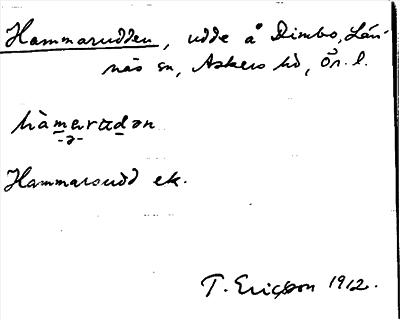 Hammarudden, udde å Dimbo, Län-
näs sn, Askers hd, Ör. l.
hàmarudən
-ə-
Hammarsudd ek.
T. Ericsson 1912.